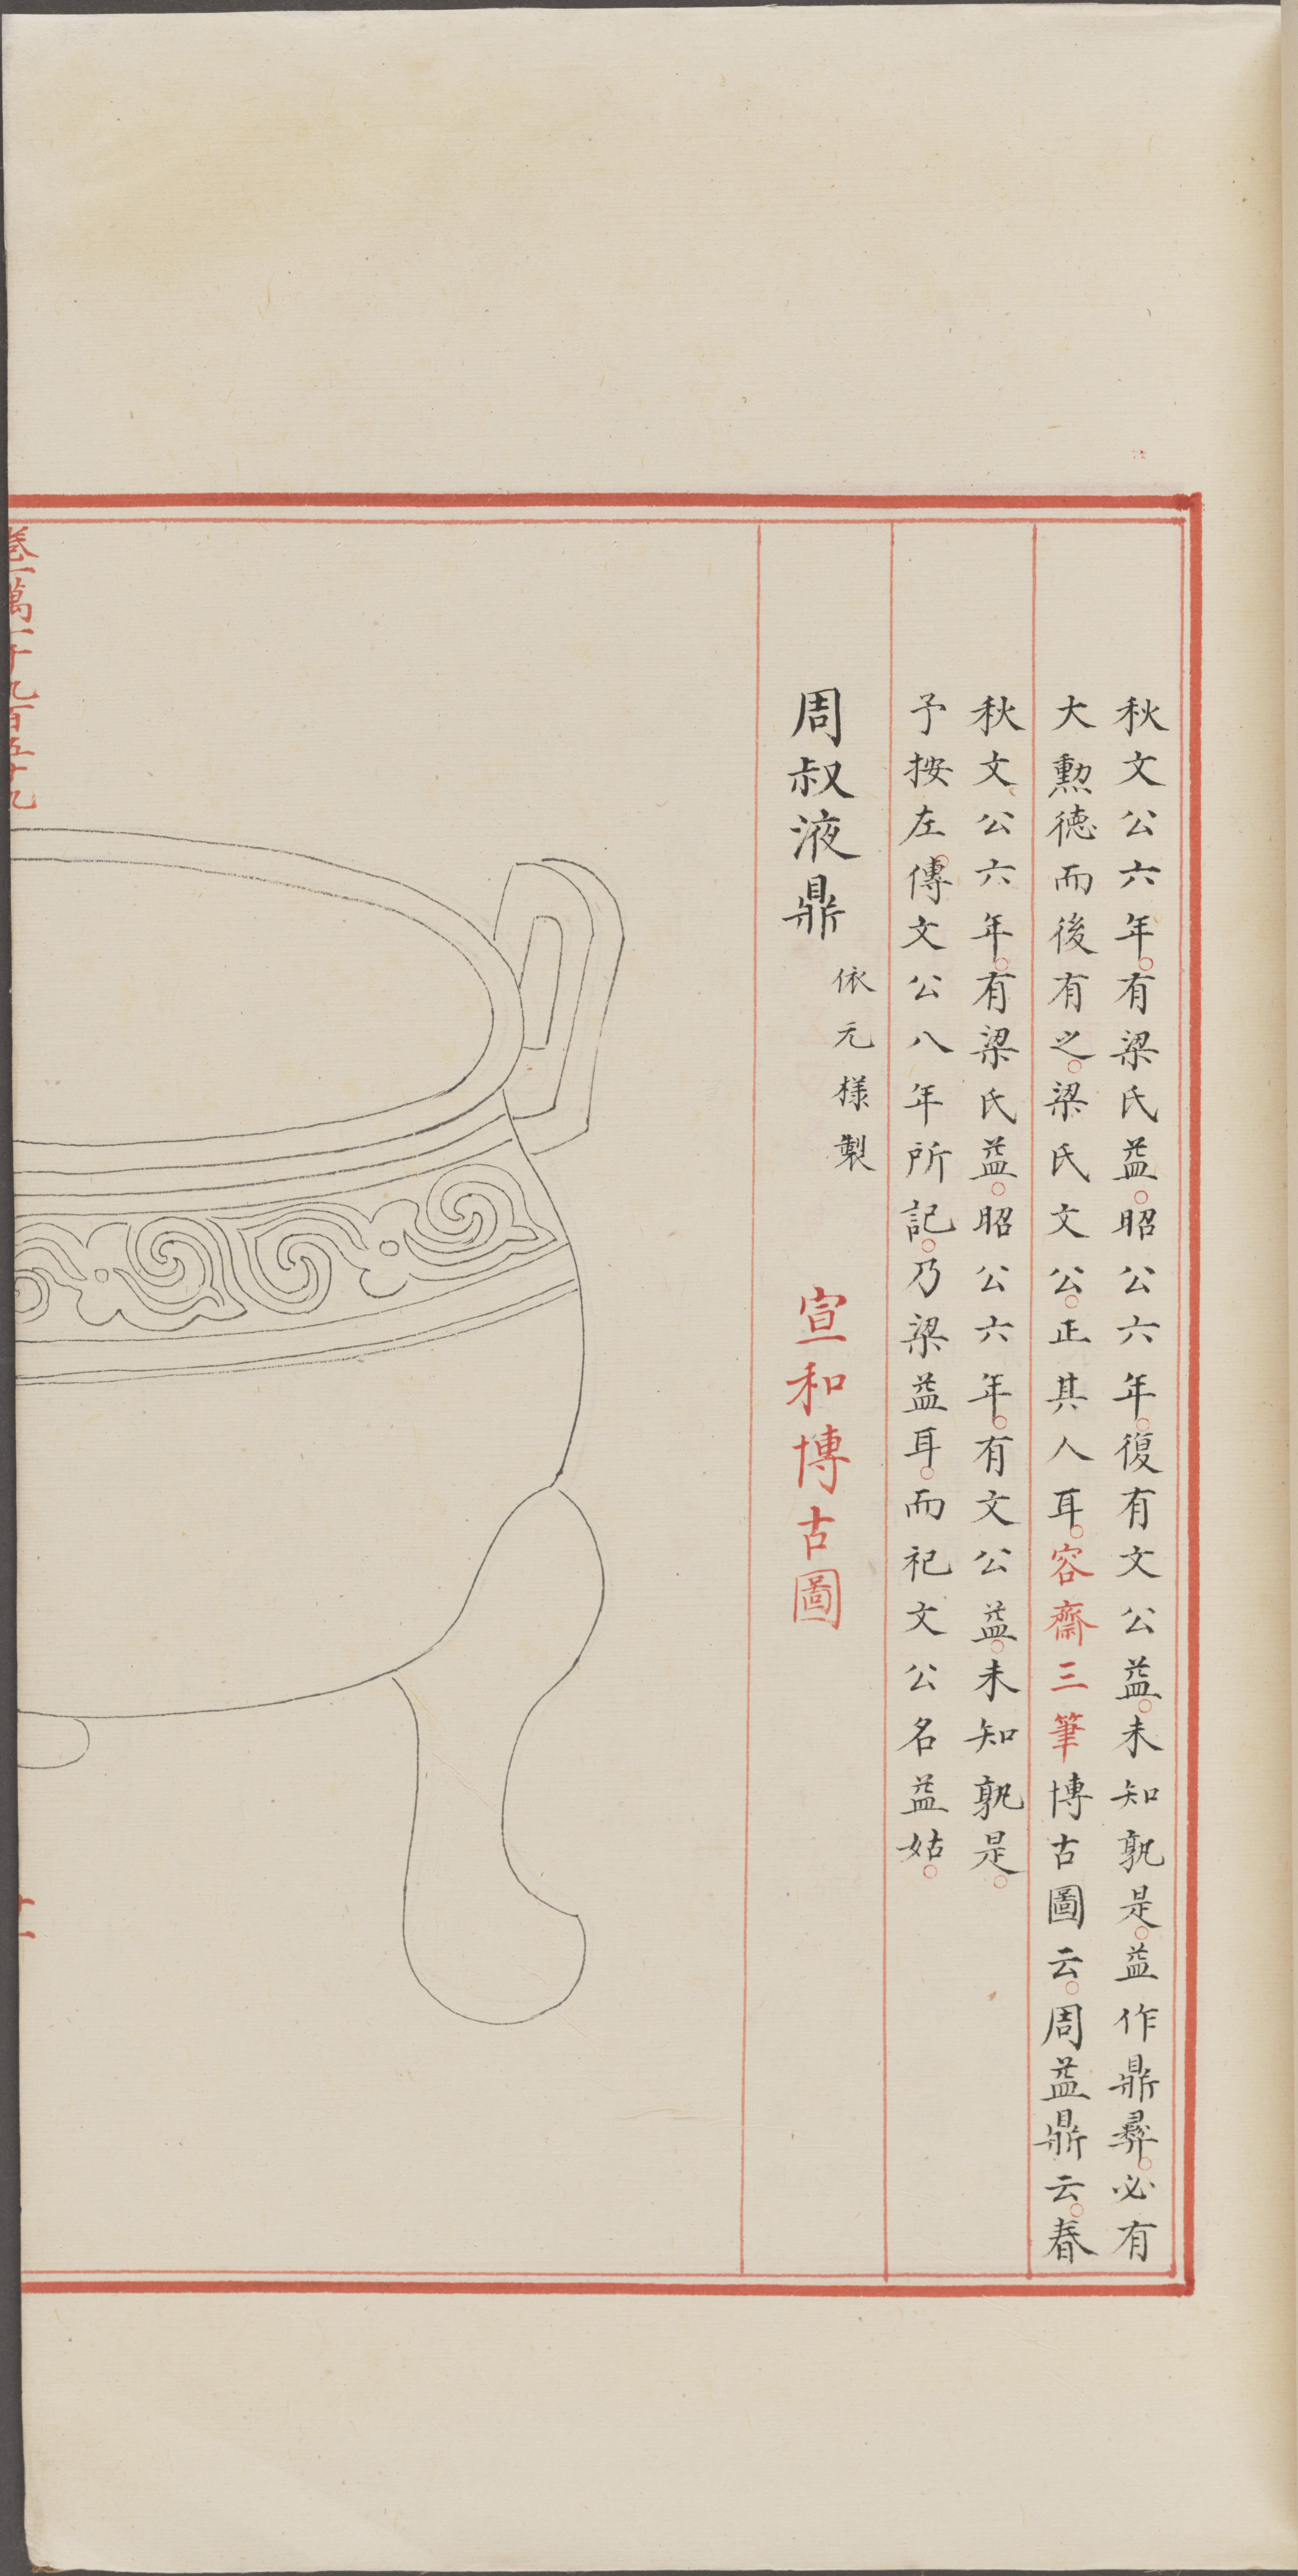 秋文公六年。有梁氏益。昭公六年。復有文公益。未知孰是。益作鼎彛。必有
大勲徳而後有之。梁氏文公。正其人耳。容齋三筆博古圖云。周益鼎云。春
秋文公六年。有梁氏益。昭公六年。有文公益。未知孰是。
予按左傳。文公八年所記。乃梁益耳。而祀文公名益姑。
周叔液鼎
依元様製
宣和博古圖
卷一萬一千九百五十九
十一